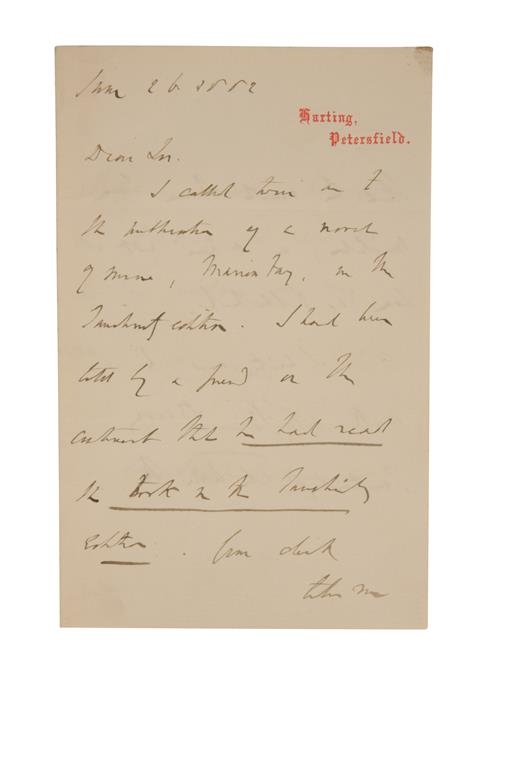 June 26 1882
Harting,
Petersfield.
Dear Sir.
I called twice as to
the publication of a novel
of mine, Marion Fay, in the
Tauchnitz edition. I had been
told by a friend on the
continent that he had read
the book in the Tauchnitz
Edition. Your clerk
tells me